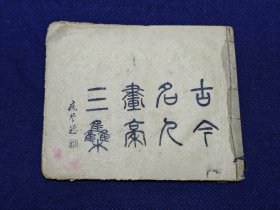 古今
名人
畫稾
三集